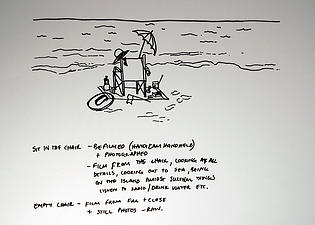 SIT IN THE CHAIR - BE FILMED (HANDICAM HANDHELD)
+ PHOTOGRAPHED
- FILM FROM THE CHAIR, LOOKING AT ALL
DETAILS, LOOKING OUT TO SEA, BEING
ON THE ISLAND AMIDST SURVIVAL THINGS
LISTEN TO RADIO/DRINK WATER ETC.
EMPTY CHAIR - FILM FROM FAR + CLOSE
+ STILL PHOTOS -